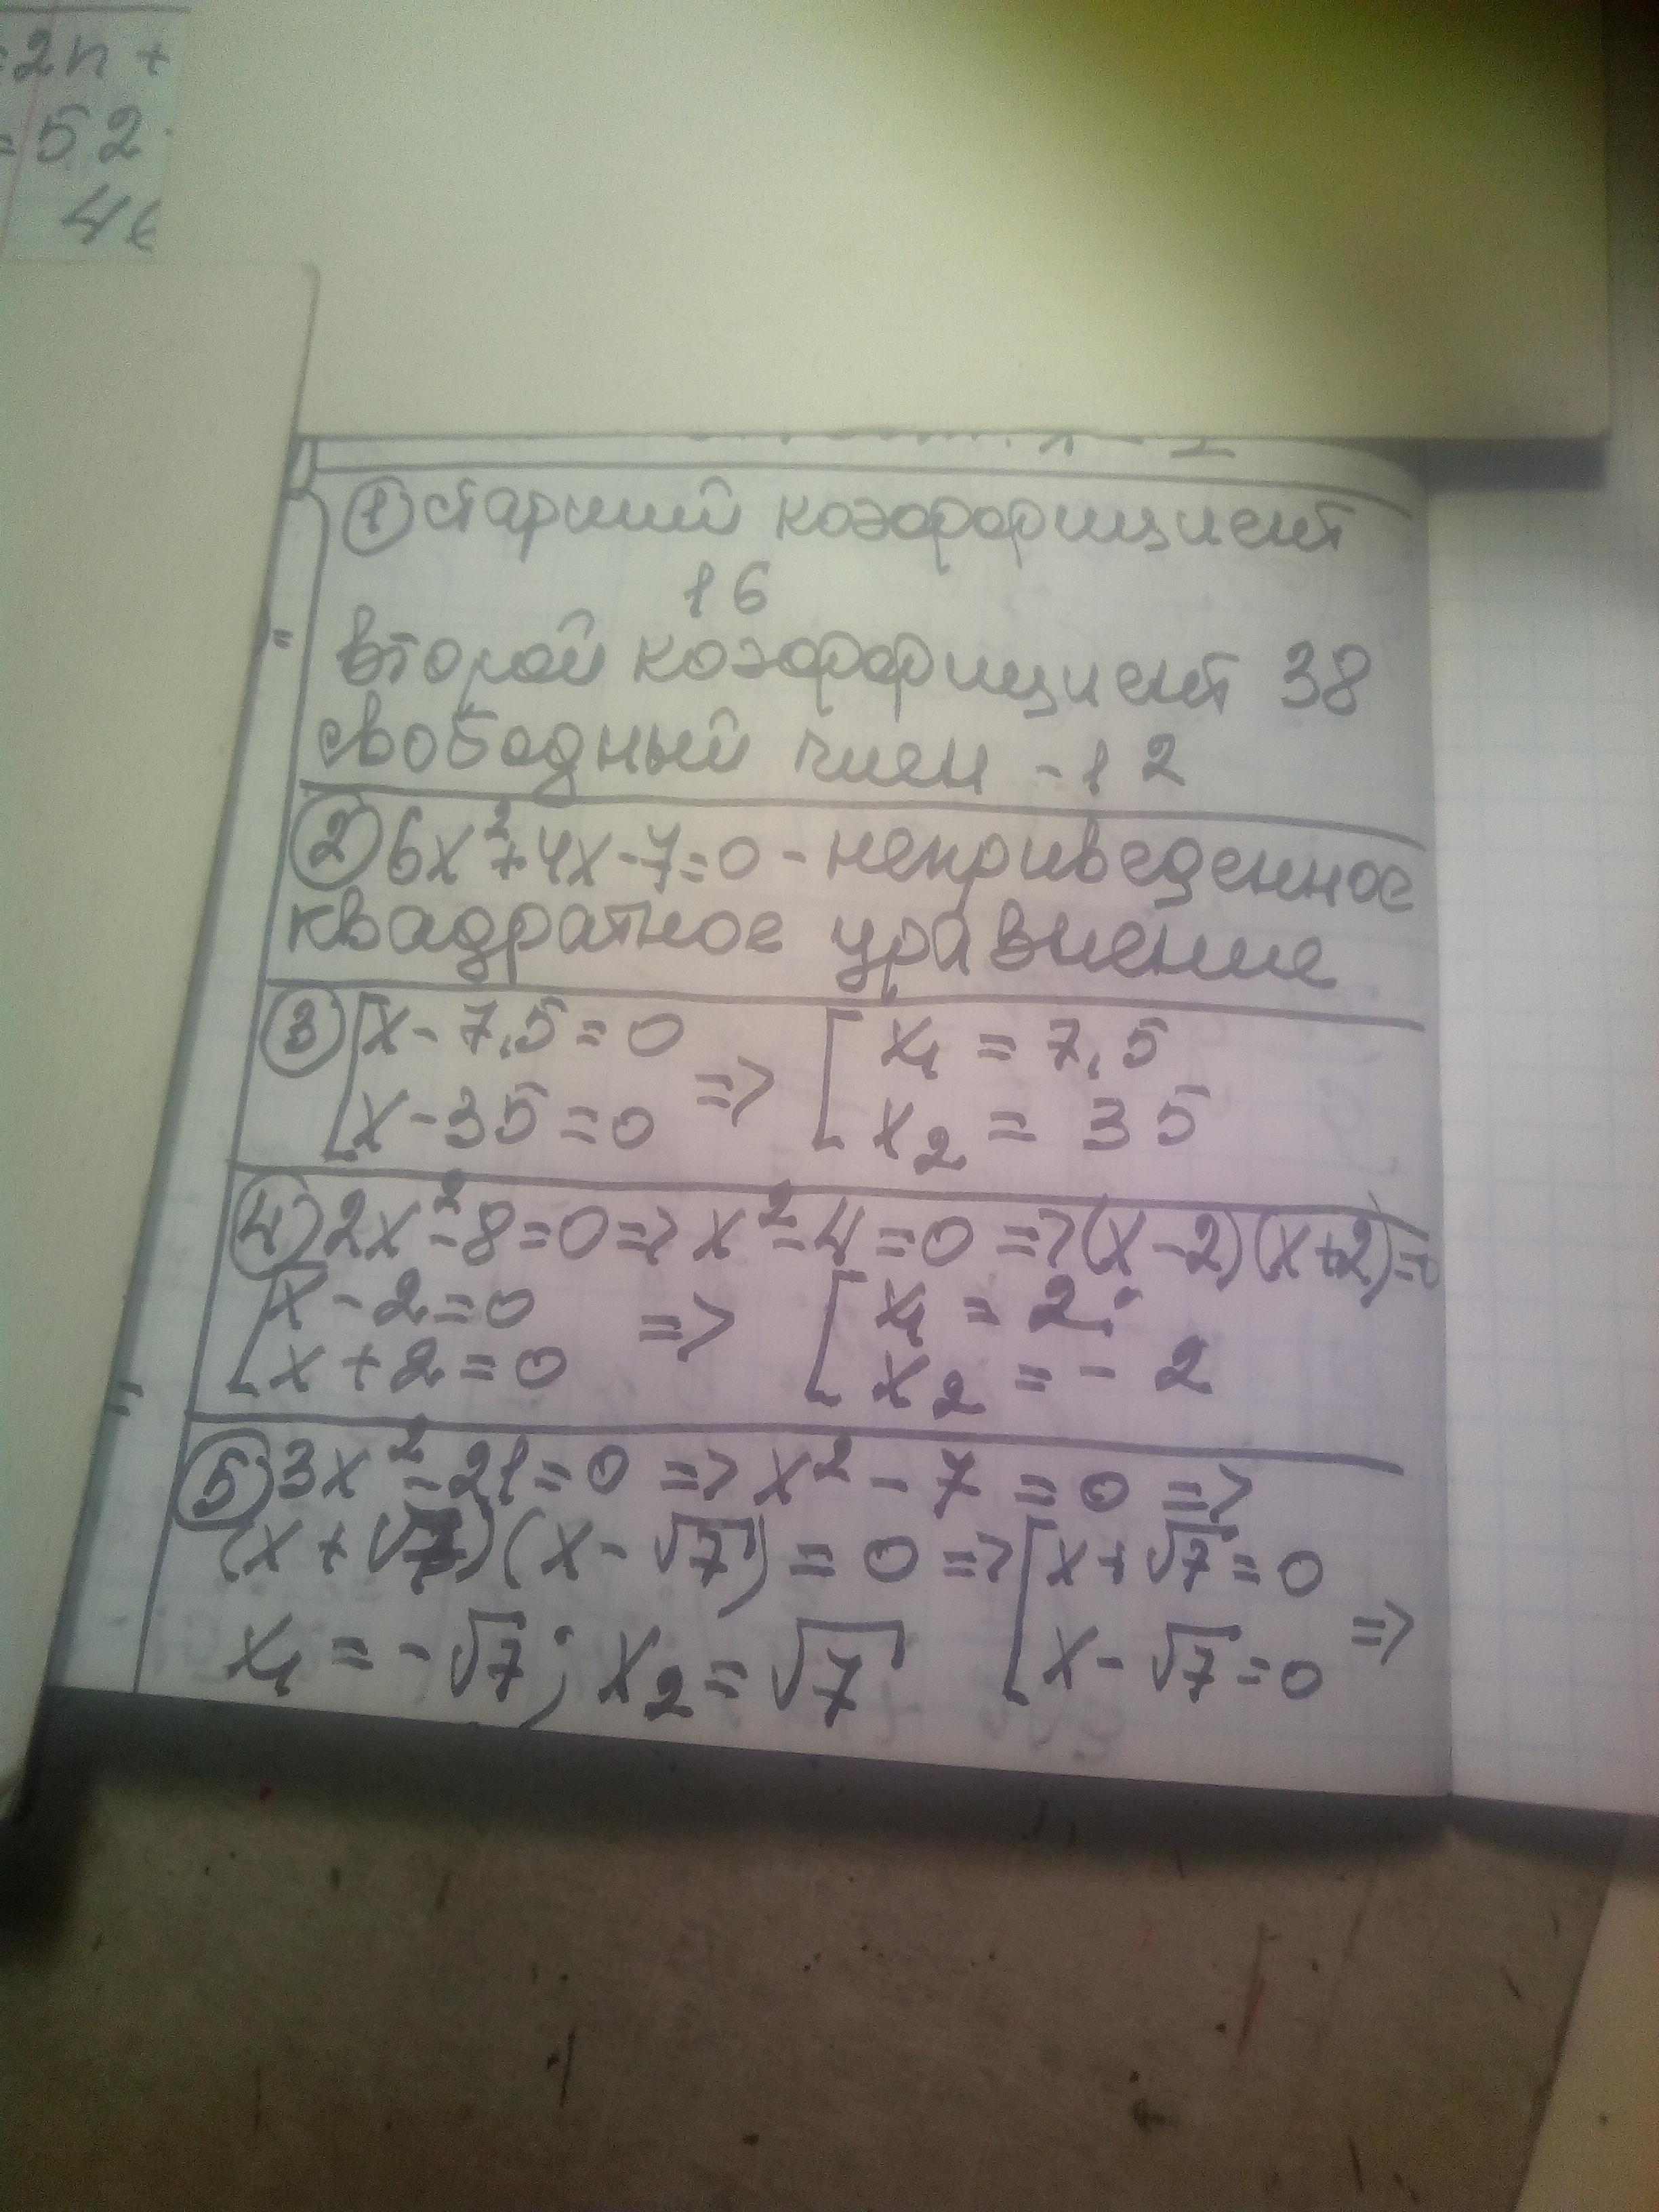 =2n +
=52
46
① старший коэффициент
16
второй коэффициент 38
свободный член -12
② 6x²+4x-7=0 - неприведенное
квадратное уравнение
③ [x-7,5=0 => [x₁ = 7,5
[x-35=0 [x₂ = 35
④ 2x²-8=0=> x²-4=0 =>(x-2)(x+2)=0
[x-2=0 => [x₁ = 2;
[x+2=0 [x₂ = -2
⑤ 3x²-21=0 => x²-7=0 =>
(x+√7)(x-√7)=0 => [x+√7=0
x₁ = -√7; x₂ = √7 [x-√7=0 =>